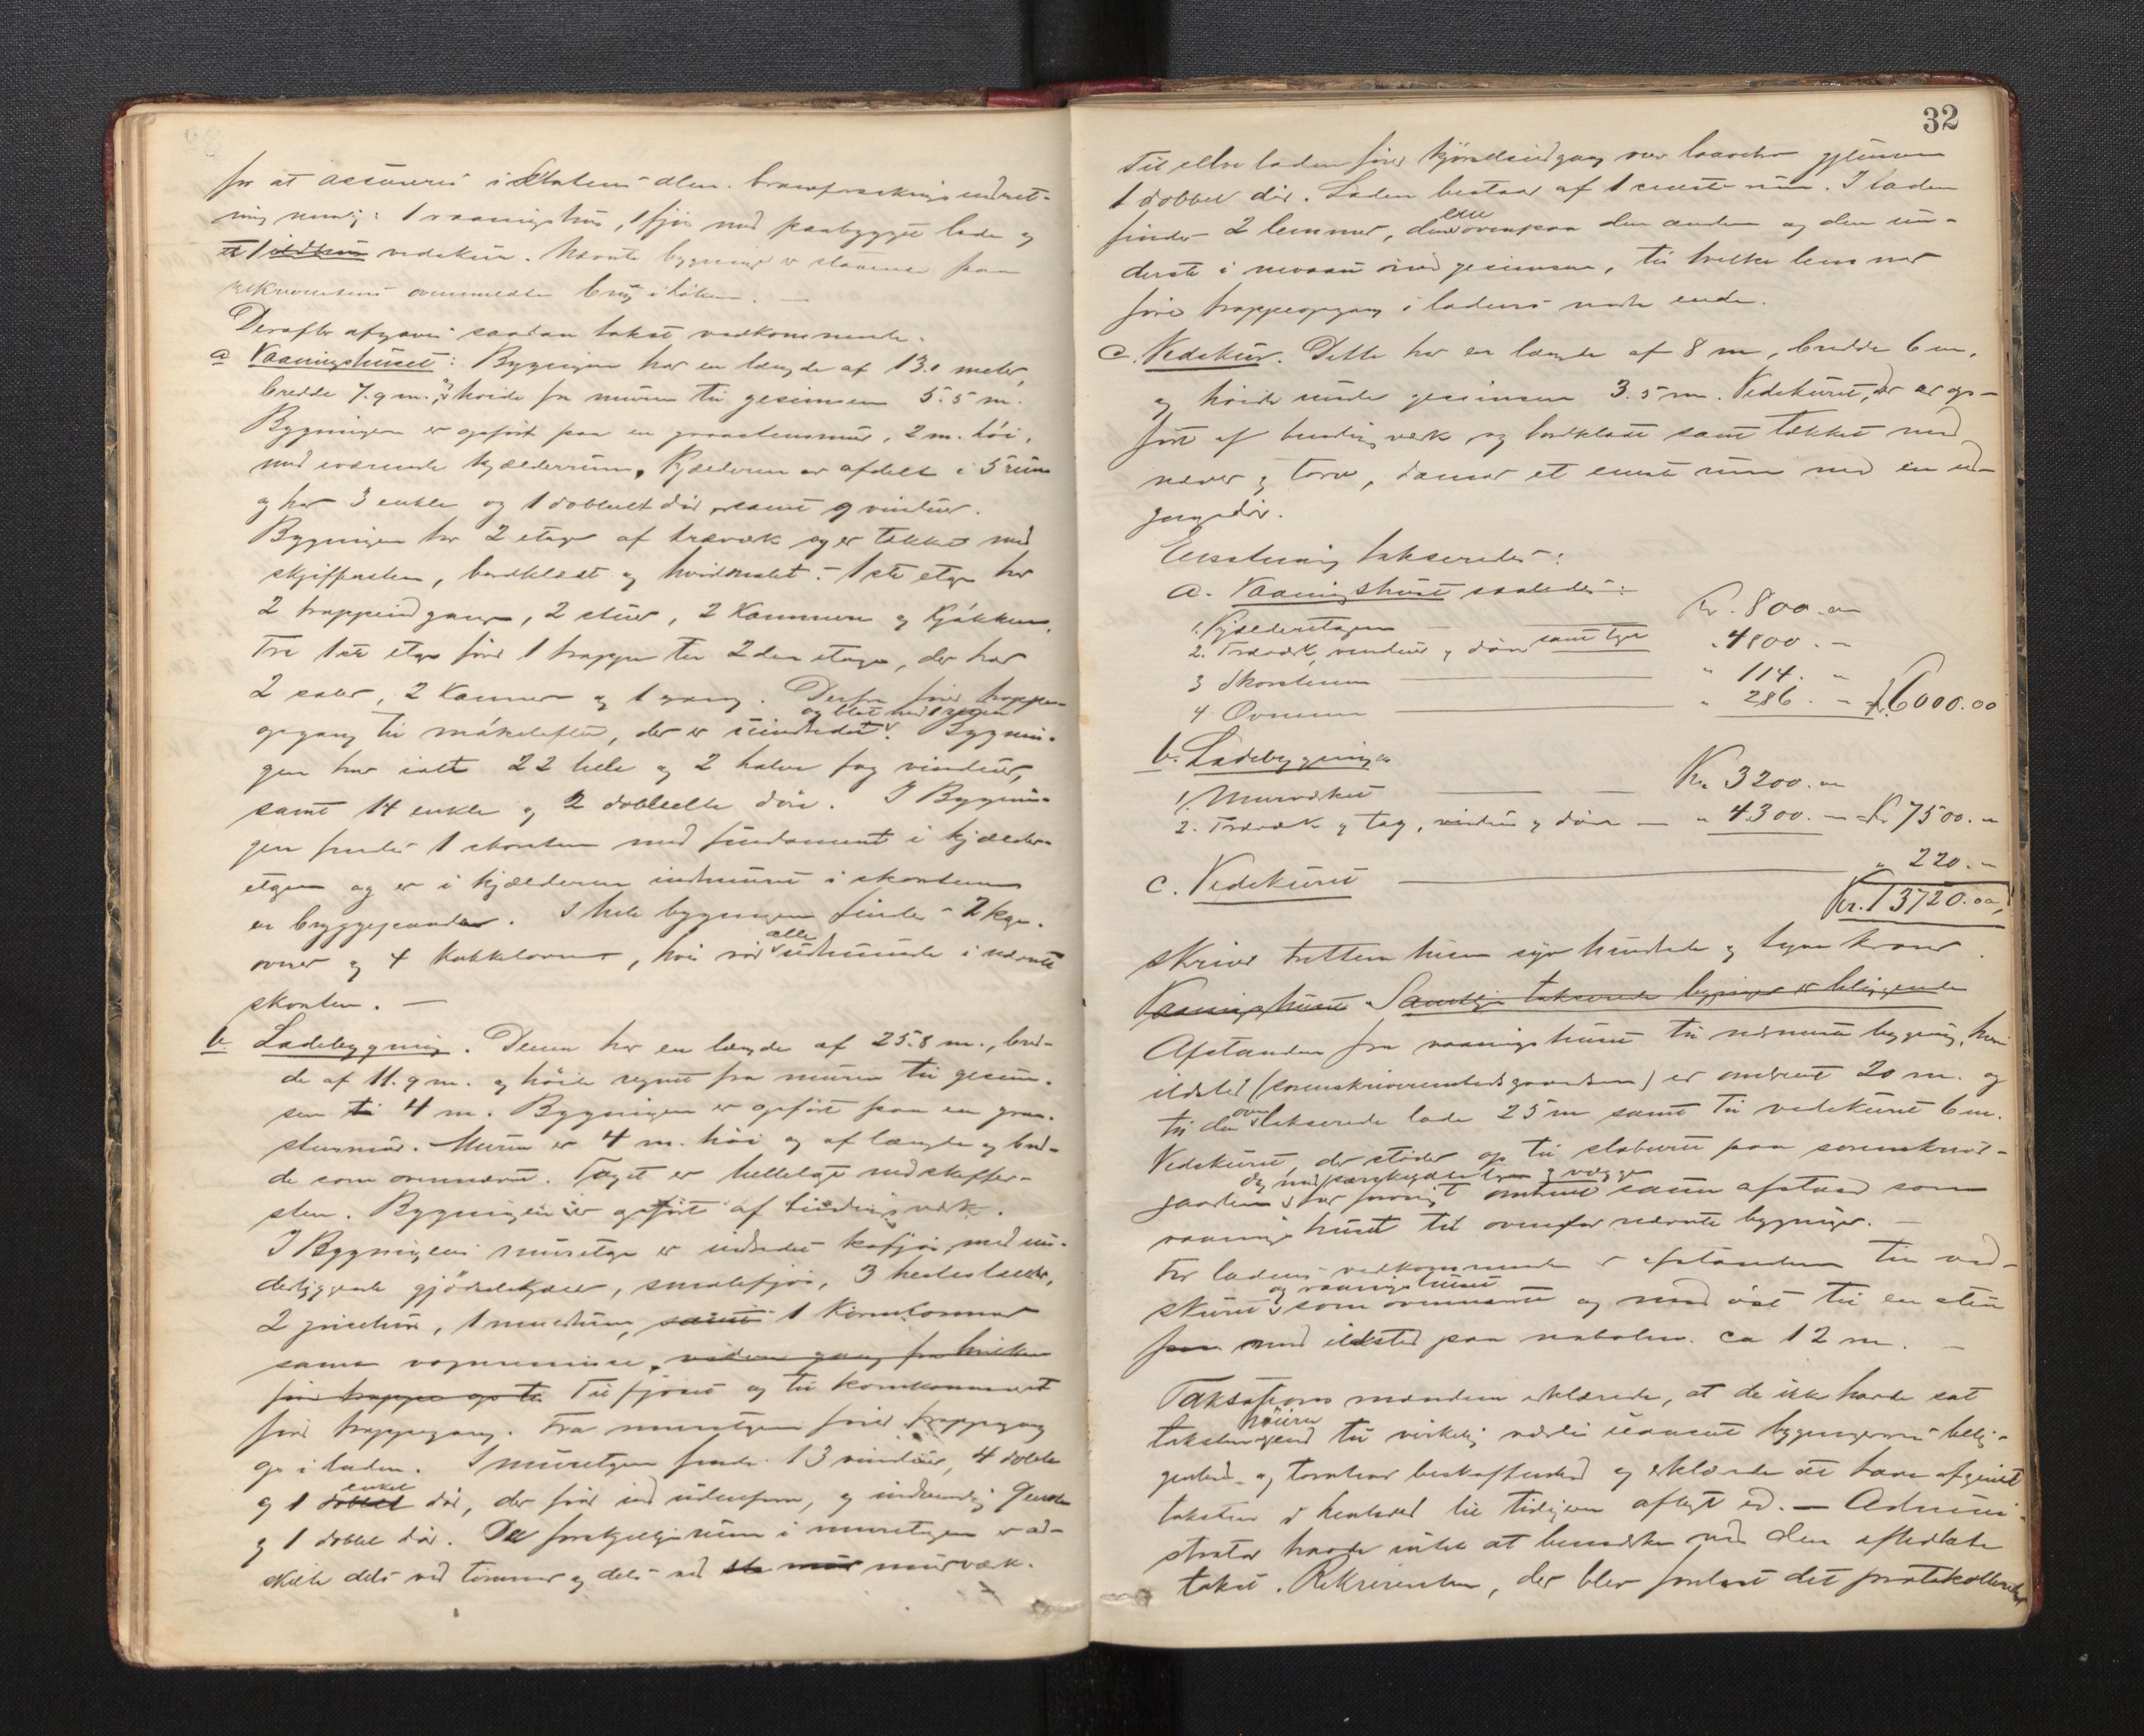 for at assureres i Statens alm. brandforsikringsindret-
ning nemlig: 1 vaaningshus, 1 fjøs med paabygget lade og
et 1 ildhus vedskur. Nævnte bygninger er staaende paa
rekvirentens ovenmeldte brug i
Derefter afgaves saadan takst vedkommende.
a Vaaningshuset: Bygningen har en længde af 13.1 meter,
bredde 7.9 m., høide fra muren til gesimsen 5.5 m.
Bygningen er opført paa en graastensmur, 2 m. høi,
med værende kjælderrum. Kjælderen er afdelt i 5 rum
og har 3 enkle og 1 dobbelt dør, samt 9 vinduer.
Bygningen har 2 etager af træværk og er tækket med
skiffersten, bordklædt og hvidmalet. 1ste etage har
2 trappeindgange, 2 stuer, 2 Kammere og Kjøkken.
Fra 1ste etage fører 1 trappe til 2den etage, der har
2 saler, 2 Kammer og 1 gang. Derfra fører trappe-
og blot med 1
opgang til mørkeloftet, der er uindredet. Bygnin-
gen har ialt 22 hele og 2 halve fag vinduer,
samt 14 enkle og 2 dobbelte døre. I Bygnin-
gen findes 1 skorsten med fundament i kjælder-
etagen og er i kjælderen indmuret i skorstenen
en bryggepande. I hele bygningen findes 2 kge.
alle
ovner og 4 Kakkelovne, hvis rør udmunde i nævnte
skorsten. —
b. Ladebygning. Denne har en længde af 25.8 m., bred-
de af 11.9 m. og høide regnet fra muren til gesim-
sen til 4 m. Bygningen er opført paa en graa-
stensmur. Muren er 4 m. høi og af længde og bred-
de som ovennævnt. Taget er hellelagt med skiffer-
sten. Bygningen er opført af bindingsværk.
I Bygningens muretage er indredet kofjøs med un-
derliggende gjødselkjelder, smalefjøs, 3 hestestalde,
2 grisehus, 1 samt 1 Kornkammer
samt vognremisse, videre gang fra hvilken
fører trappe op til Til fjøset og til kornkammeret
fører trappegang. Fra muretagen fører trappegang
op i laden. I muretagen findes 13 vinduer, 4 dobble
enkel
og 1 dobbel dør, der fører ind udenfra, og indvendig 9 enkle
og 1 dobbel dør. De forskjellige rum i muretagen er ad-
skilte dels ved tømmer og dels ved mur murværk.
32
Til selve laden fører kjørselsindgang over gjennem
1 dobbel dør. Laden bestaar af 1 eneste rum. I laden
ene
findes 2 lemmer, den ovenpaa den anden og den un-
derste i niveau med gesimsen, til hvilke lemmer
fører trappeopgang i ladens nedre ende.
c. Vedskur. Dette har en længde af 8 m, bredde 6 m,
og høide under gesimsen 3.5 m. Vedskuret, der er op-
ført af bindingsværk og bordklædt samt tækket med
næver og torv, danner et eneste rum med en ud-
gangsdør.
Eensstemmig takseredes:
a. Vaaningshuset saaledes:
1. Kjælderetagen — Kr. 800.00
2. Træværk, vinduer og døre samt tag " 4800. "
3 Skorstenen — " 114. "
4. Ovnene — " 286. " Kr. 6000.00
b. Ladebygningen
1. Murværket — — Kr. 3200.00
2. Træværk og tag, vinduer og døre — " 4300. — Kr 7500. "
c. Vedskuret — " 220. "
Kr. 13720.00,
skriver tretten tusen syv hundrede og tyve kroner.
Vaaningshuset Samtlige takserede bygninger er beliggende
Afstanden fra vaaningshuset til nærmeste bygning, hvori
ildsted (sorenskriverembedsgaarden) er omtrent 20 m. og
oven
til den takserede lade 25 m samt til vedskuret 6 m.
Vedskuret, der støder op til stabburet paa sorenskriver-
gaarden har forøvrigt omtrent samme afstand som
vaaningshuset til ovenfor nævnte bygninger. —
For ladens vedkommende er afstanden til ved-
og vaaningshuset
skuret som ovennævnt og mod øst til en stue
paa med ildsted paa nabolandet ca 12 m. —
Taksationsmændene erklærede, at de ikke havde sat
høiere
taksten end til virkelig værdi uanseet bygningernes belig-
genhed og beskaffenhed og erklærede at have afgivet
taksten i henhold til tidligere aflagt ed. — Admini-
strator havde intet at bemærke ved den afholdte
takst. Rekvirenten, der blev forelæst det protokollerede